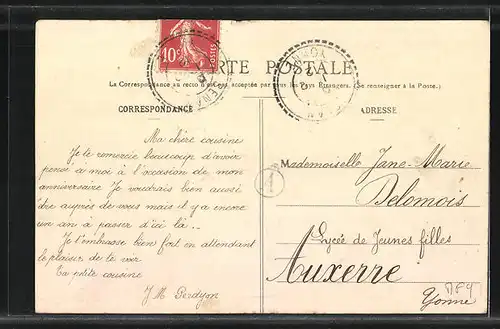 CARTE POSTALE
La Correspondance au recto n'est pas acceptée par tous les Pays Étrangers. (Se renseigner à la Poste.)
CORRESPONDANCE
ADRESSE
10c
POSTES
Ma chère cousine
Je te remercie beaucoup d'avoir
pensé a moi à l'occasion de mon
anniversaire Je voudrais bien aussi
être auprès de vous mais il y a encore
un an à passer d'ici là..
Je t'embrasse bien fort en attendant
le plaisir de te voir
Ta p'tite cousine
J M
Mademoiselle Jane-Marie
Delomois
Lycée de Jeunes filles
Auxerre
Yonne
1